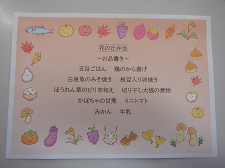 花の丘弁当
～お品書き～
五目ごはん　鶏のから揚げ
白身魚のみそ焼き　枝豆入り卵焼き
ほうれん草のピリ辛和え　切り干し大根の煮物
かぼちゃの甘煮　ミニトマト
みかん　牛乳